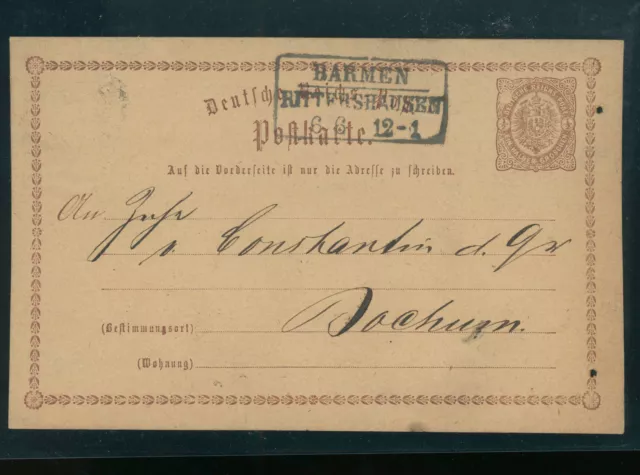 BARMEN
RITTERSHAUSEN
6 6 12-1
Deutsche Reichs-Post
Postkarte.
Auf die Vorderseite ist nur die Adresse zu schreiben.
An Zeche
v. Constantin d. Gr
Bochum.
(Bestimmungsort)
(Wohnung)